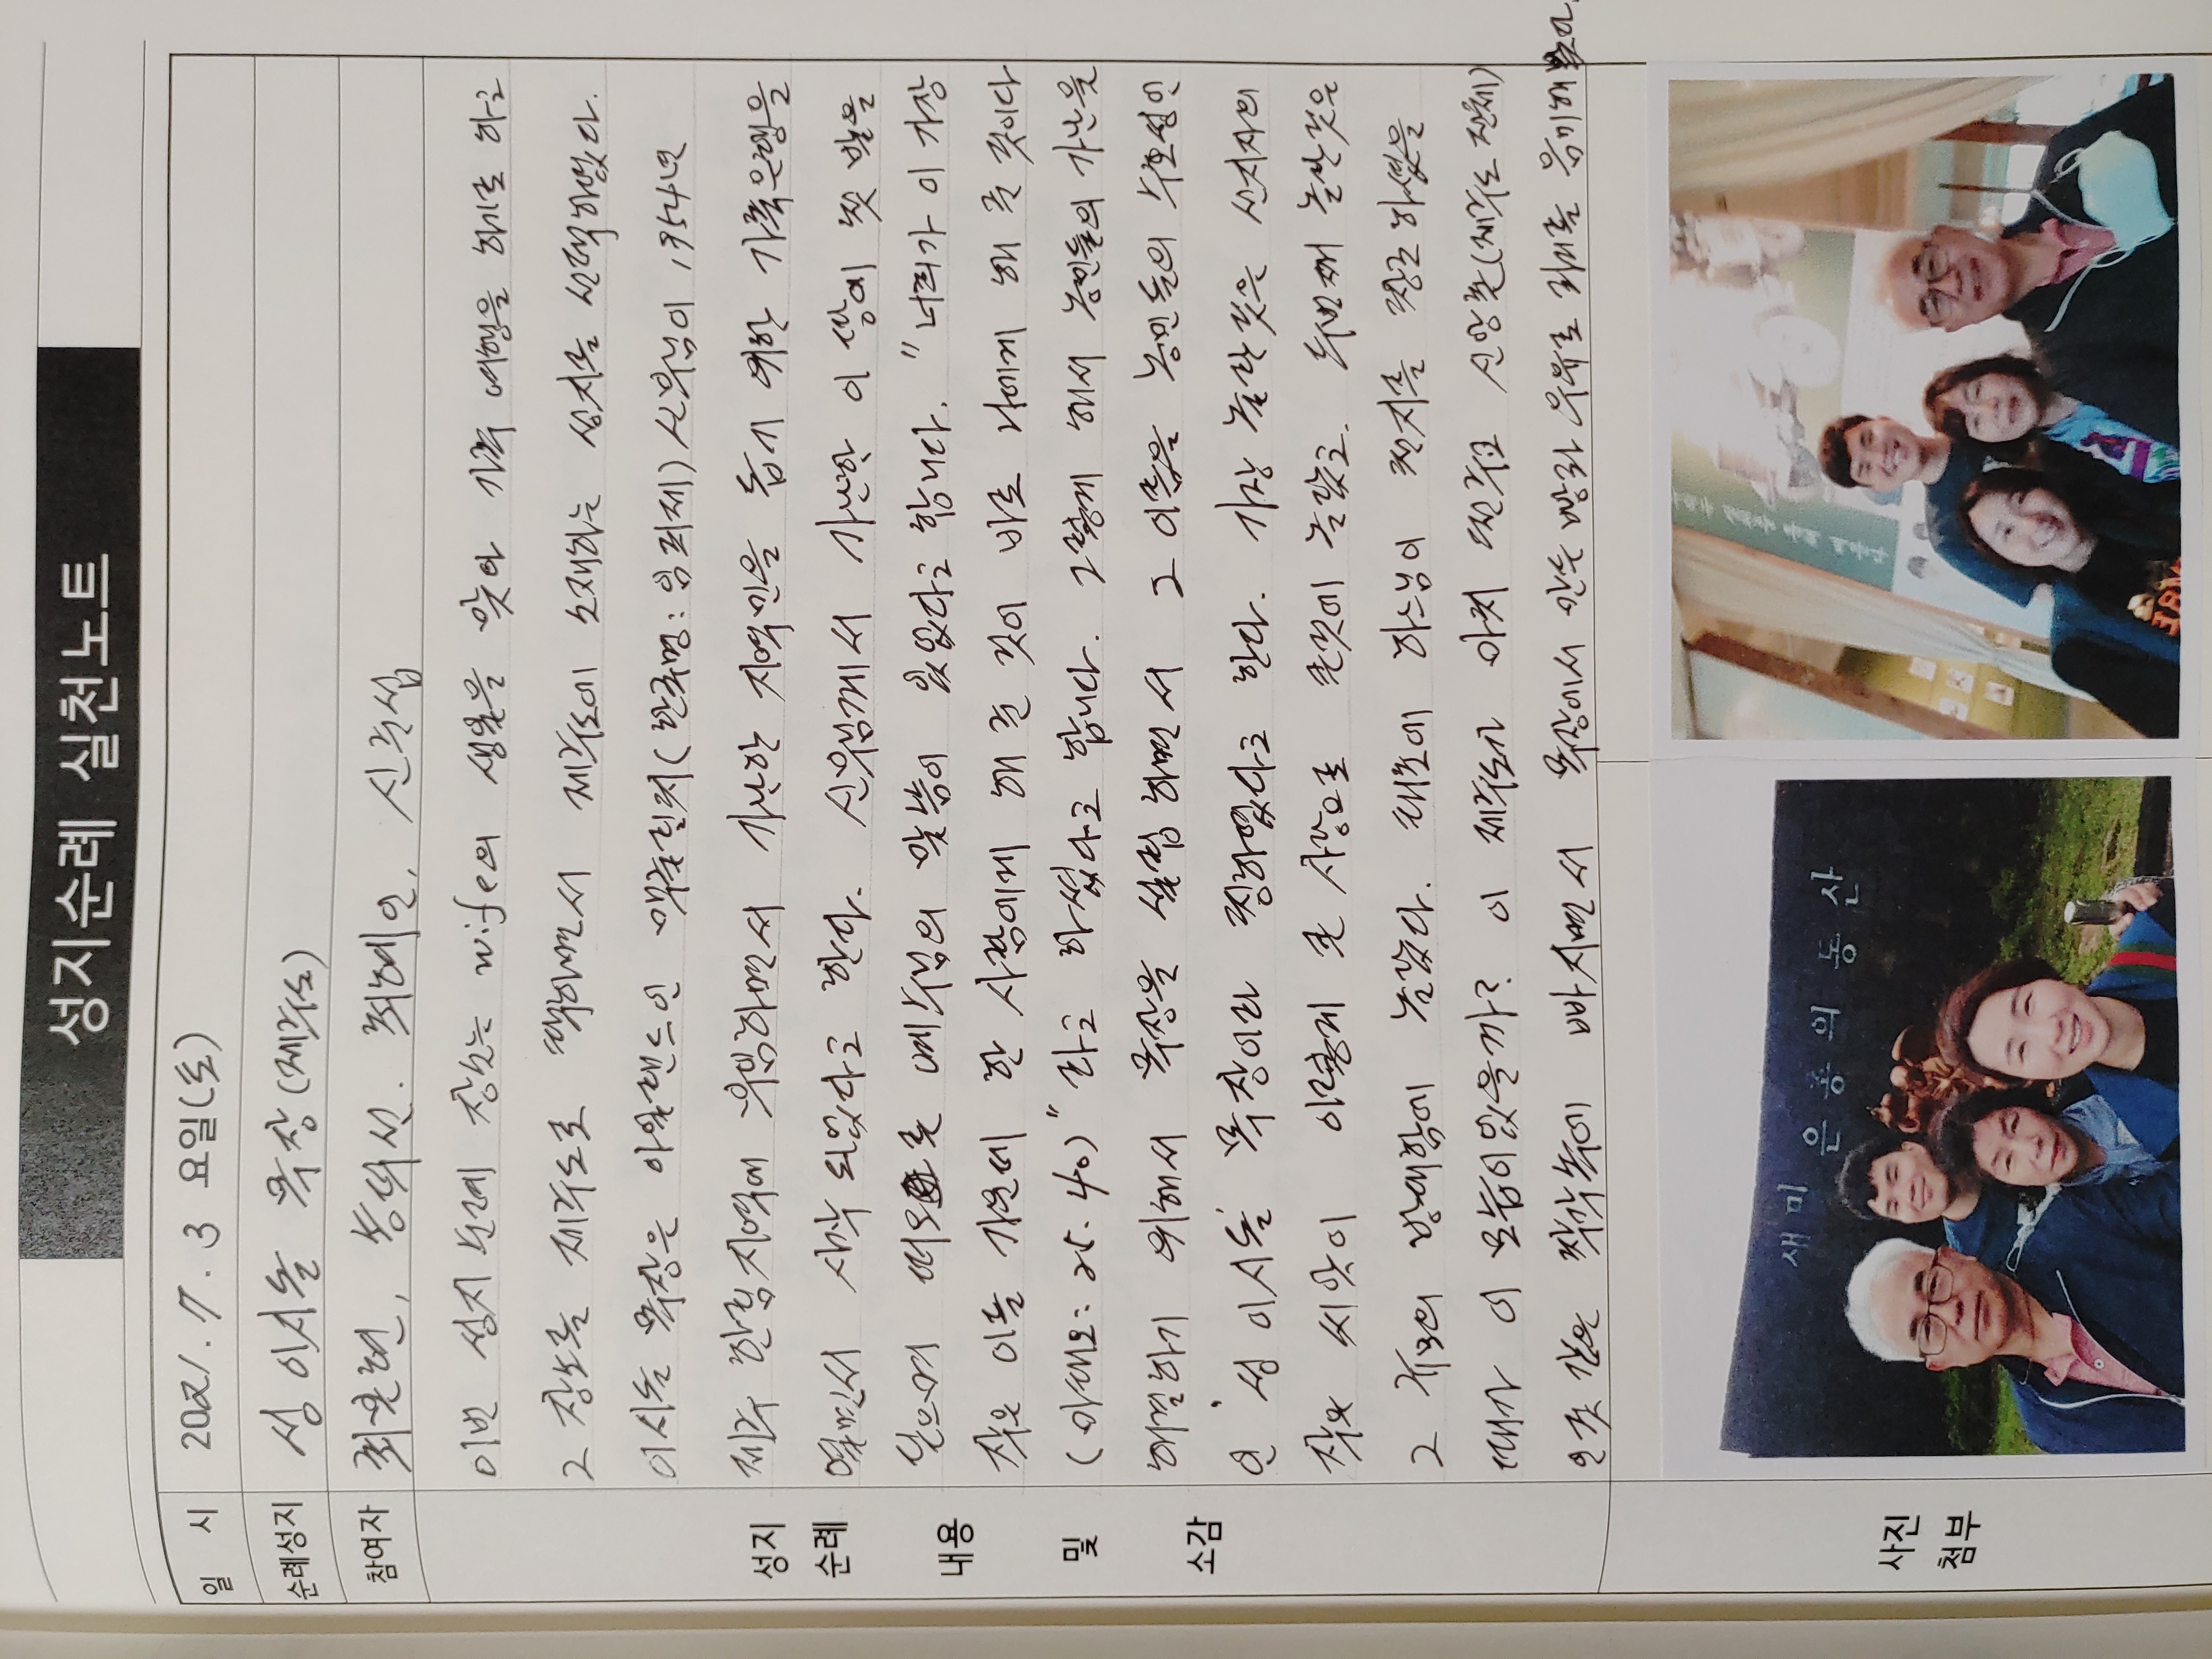 성지순례 실천노트
일 시 2021. 7. 3 요일(토)
순례성지 성 이시돌 목장(제주도)
참여자 최문현, 송덕선. 최혜인, 신준섭
이번 성지 순례 장소는 wife의 생일을 맞아 가족 여행을 하기로 하고
그 장소를 제주도로 택하면서 제주도에 소재하는 성지를 선택하였다.
이시돌 목장은 아일랜드인 맥그린치(한국명: 임피제) 신부님이 1954년
제주 한림지역에 부임하면서 가난한 지역민을 돕기 위한 가축은행을
열면서 시작 되었다고 한다. 신부님께서 가난한 이 땅에 첫 발을
딛으며 떠오른 예수님의 말씀이 있었다고 합니다. "너희가 이 가장
작은 이들 가운데 한 사람에게 해 준 것이 바로 나에게 해 준 것이다
(마태오: 25. 40)" 라고 하셨다고 합니다. 그렇게 해서 농민들의 가난을
해결하기 위해서 목장을 설립 하면서 그 이름을 농민들의 수호성인
인 '성 이시돌' 목장이라 칭하였다고 한다. 가장 놀란것은 선지자의
작은 씨앗이 이렇게 큰 사랑으로 큰것에 놀랐고. 두번째 놀란것은
그 규모의 방대함에 놀랐다. 태초에 하느님이 천지를 창조하셨을
때가 이 모습이었을까? 이 제주도가 마치 천주교 신앙촌(제주도 전체)
인것 같은 착각속에 빠지면서 목장에서 만든 빵과 우유로 피로를 음미해 본다.
성지
순례
내용
및
소감
사진
첨부
새미 은총의 동산